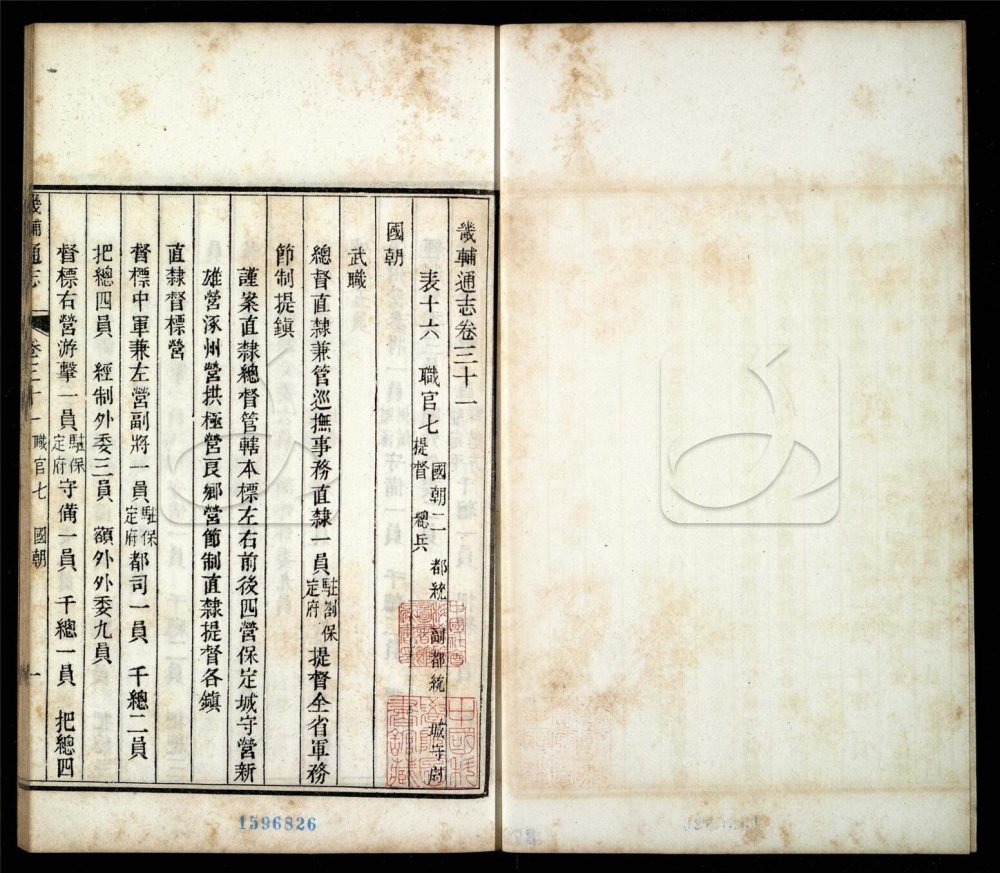 畿輔通志卷三十一
表十六 職官七 國朝二 都統 副都統 城守尉 提督 總兵
國朝
武職
總督直隸兼管巡撫事務直隸一員駐劄保定府提督全省軍務
節制提鎮
謹案直隸總督管轄本標左右前後四營保定城守營新
雄營涿州營拱極營良鄉營節制直隸提督各鎮
直隸督標營
督標中軍兼左營副將一員駐保定府都司一員 千總二員
把總四員 經制外委三員 額外外委九員
督標右營游擊一員駐保定府守備一員 千總一員 把總四
畿輔通志 卷三十一 職官七 國朝 一
1596826